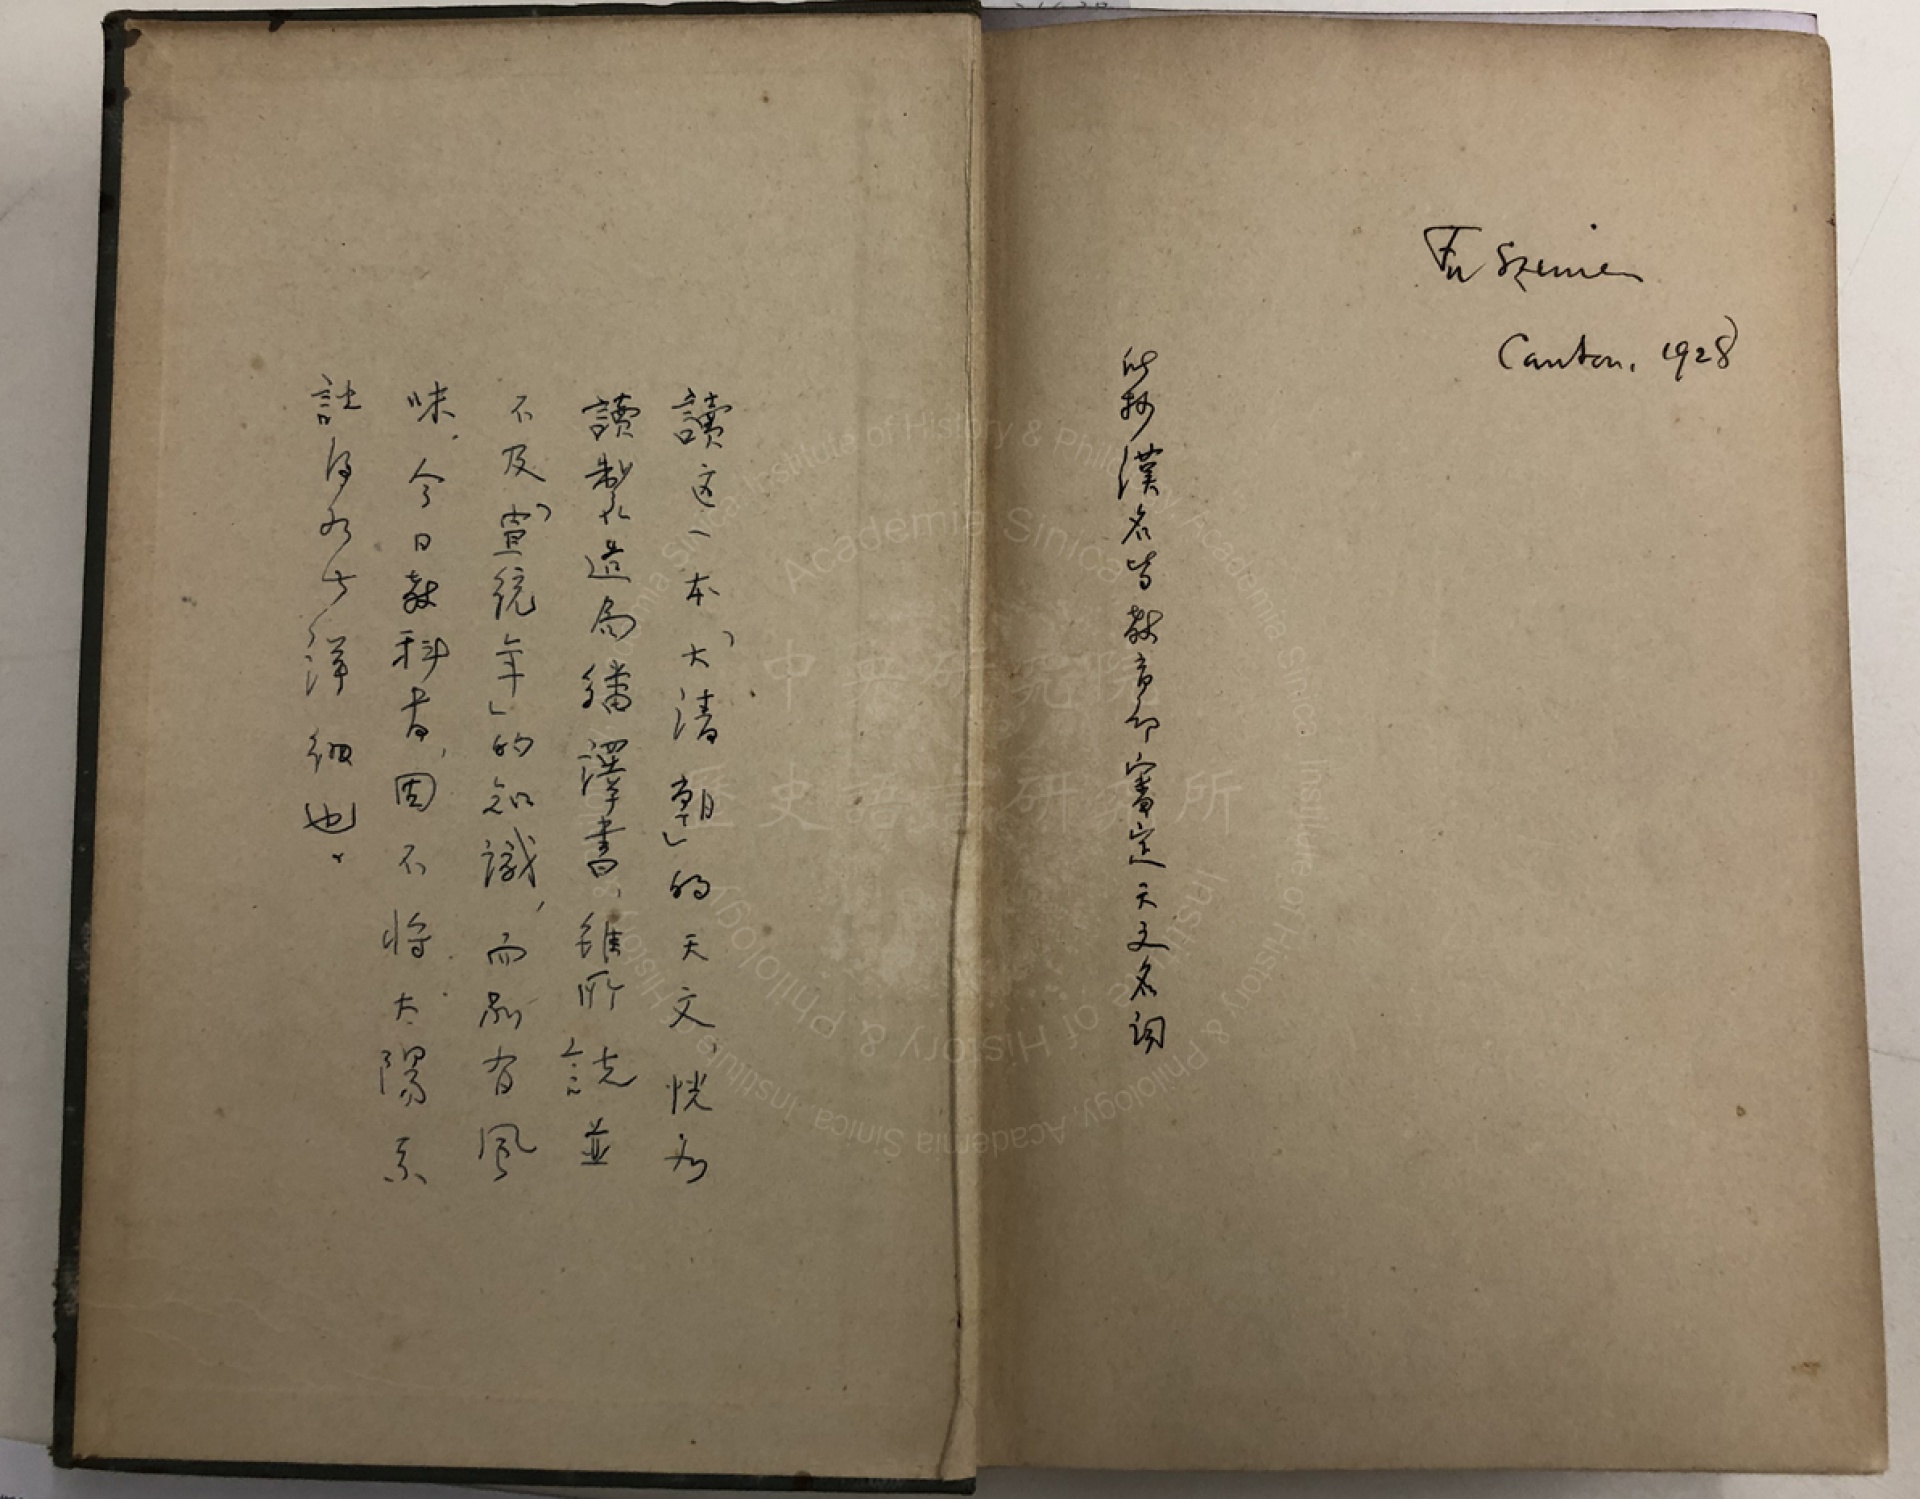 Fu Szenien
Canton, 1928
此抄漢名皆教育部審定天文名詞
讀这一本「大清朝」的天文，恍如
讀製造局繙譯書，雖所說並
不及「宣統年」的知識，而別有風
味．今日教科書，固不將太陽系
註得如此詳細也．
Academia Sinica
中央研究院
歷史語言研究所
Institute of History & Philology, Academia Sinica